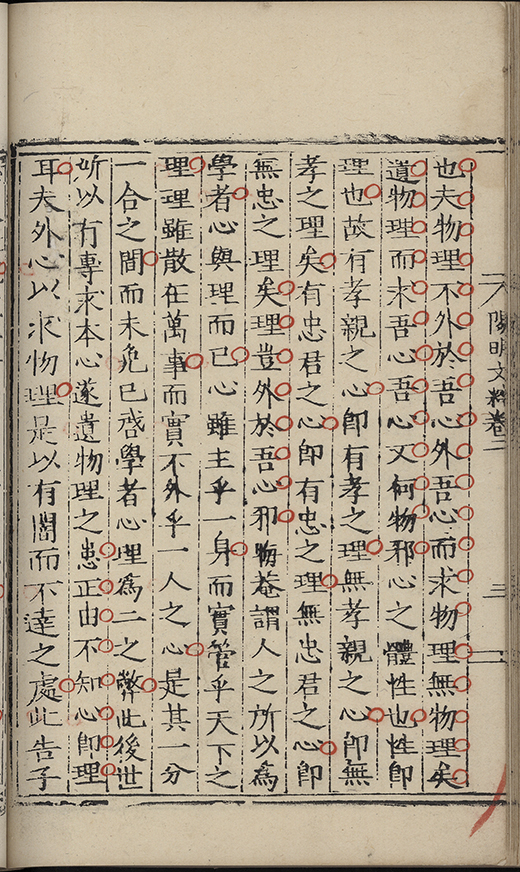 陽明文粹卷二
三
也夫物理不外於吾心外吾心而求物理無物理矣
遺物理而求吾心吾心又何物邪心之體性也性即
理也故有孝親之心即有孝之理無孝親之心即無
孝之理矣有忠君之心即有忠之理無忠君之心即
無忠之理矣理豈外於吾心邪晦菴謂人之所以為
學者心與理而已心雖主乎一身而實管乎天下之
理理雖散在萬事而實不外乎一人之心是其一分
一合之間而未免已啓學者心理為二之弊此後世
所以有專求本心遂遺物理之患正由不知心即理
耳夫外心以求物理是以有闇而不達之處此告子